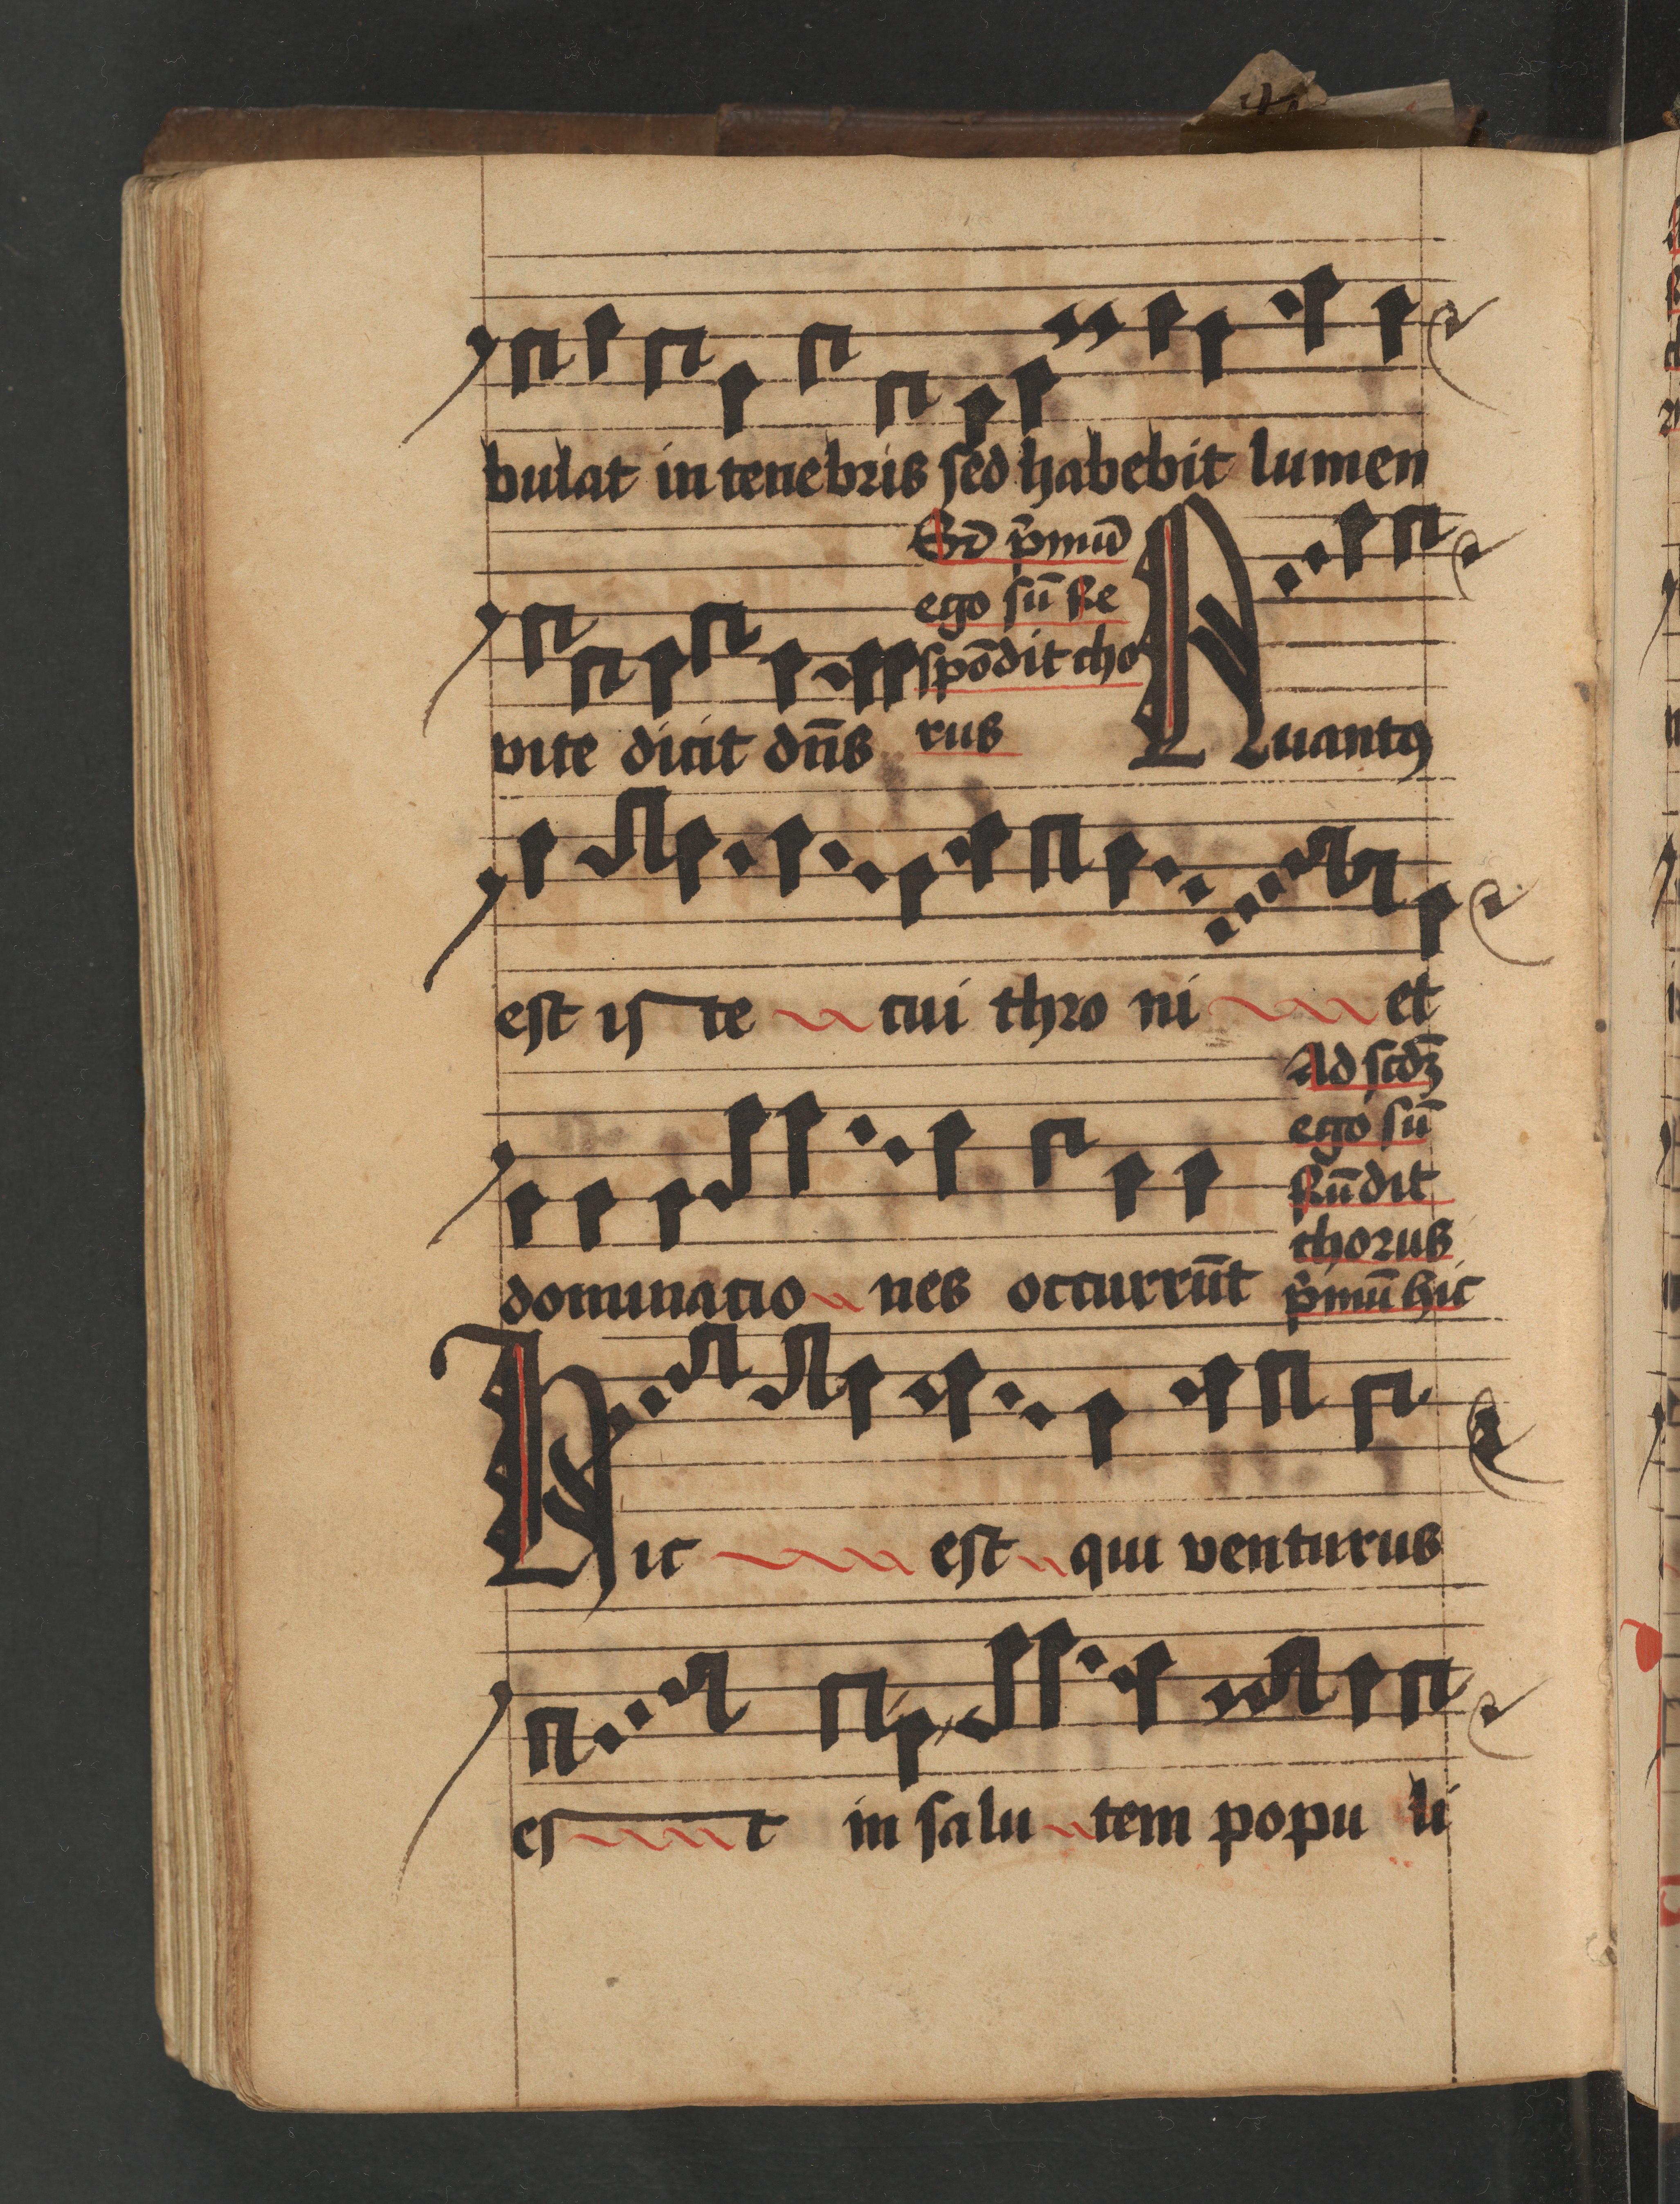 bulat in tenebris sed habebit lumen
Sꝺ p̄mū
ego sū Re
spōdit cho
rus
vite dicit dn̄s Quantꝯ
est is te cui thro ni et
Ad scdꝫ
ego sū
Rūdit
chorus
p̄mū hic
dominacio nes occurrūt
Hic est qui venturus
es t in salu tem popu li